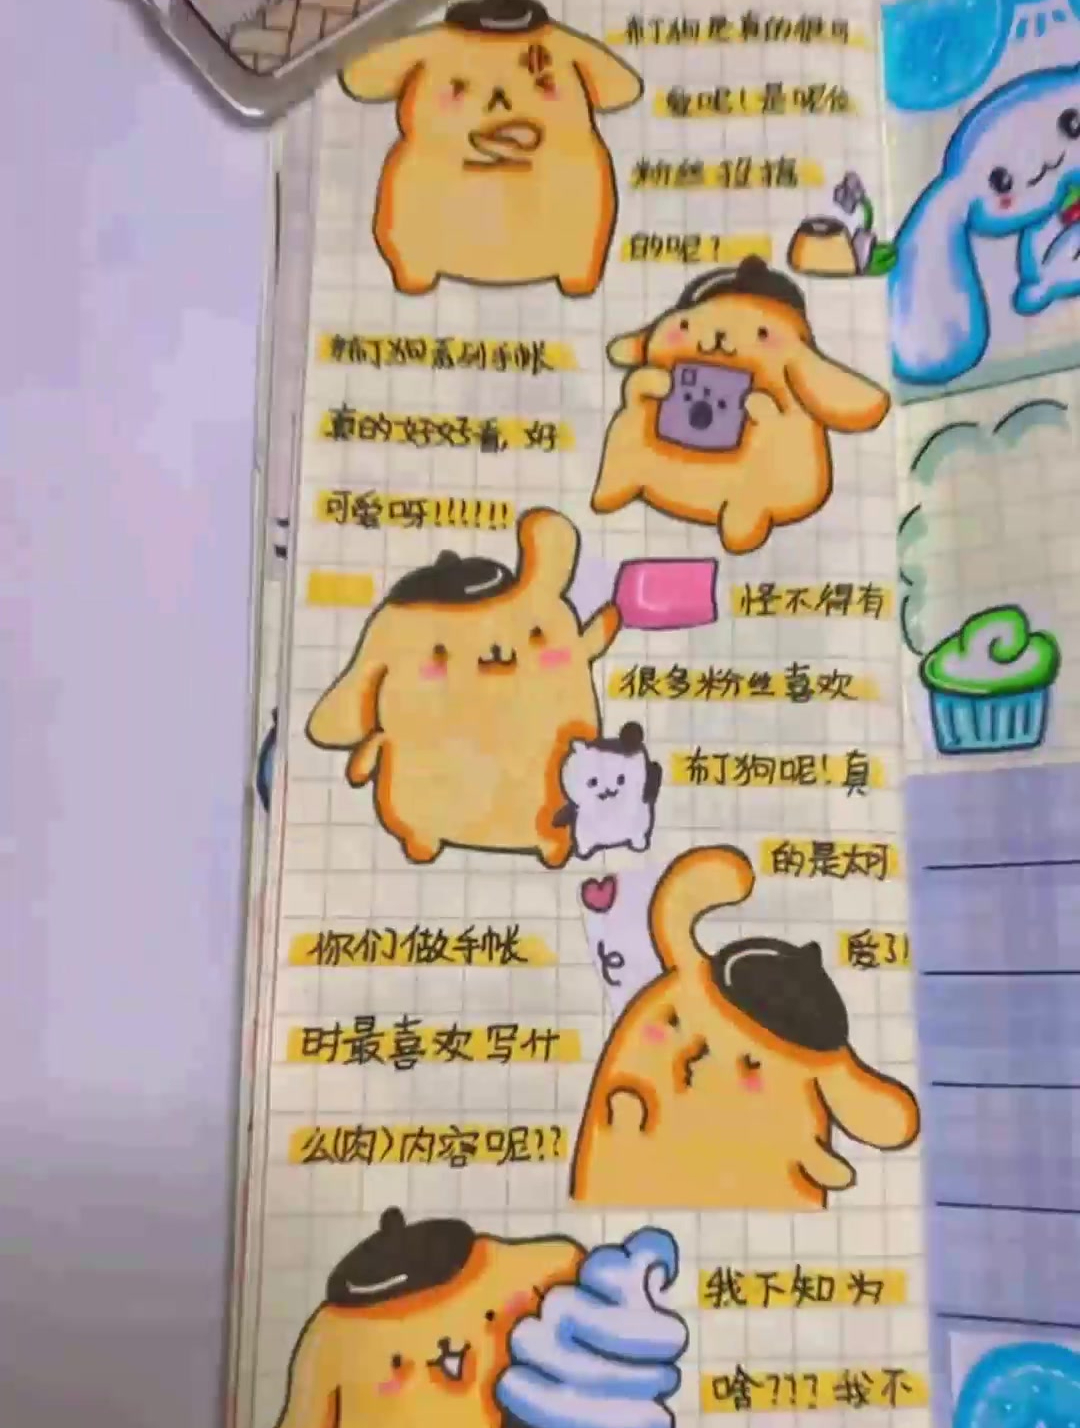 布丁狗是真的很可
爱呢！是呢位
粉丝投稿
的呢？
布丁狗系列手帐
真的好好看，好
可爱呀！！！！！！
怪不得有
很多粉丝喜欢
布丁狗呢！真
的是太可
爱了！
你们做手帐
时最喜欢写什
么(肉)内容呢？？
我不知为
啥？？？我不